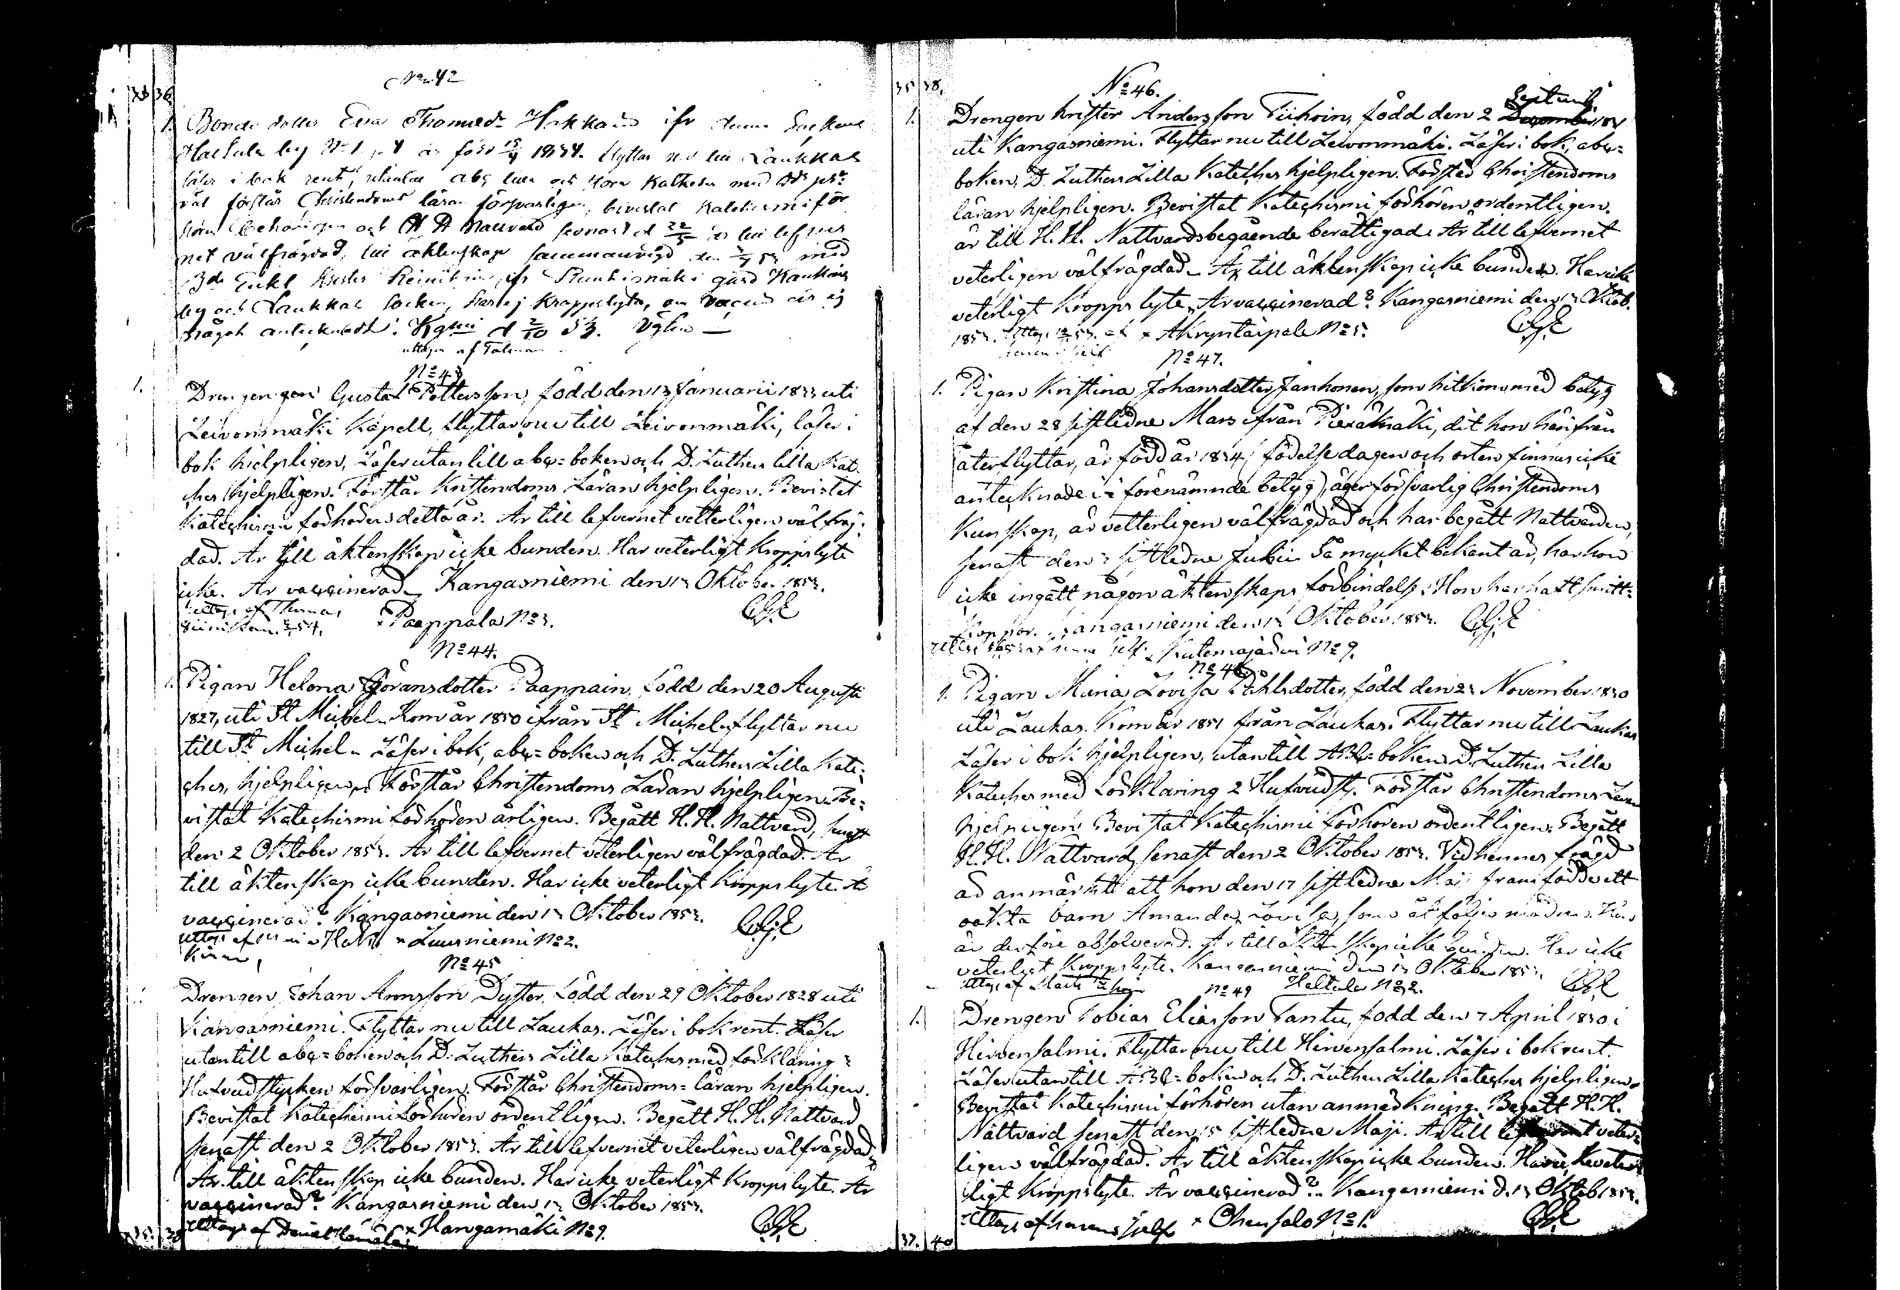 No 42
33 36.
1. Bonde dotter Eva Thomasdr Hokkain ifr denna Sockens
Läser i bok rent, utantill abc boken och
väl förstår Christendoms läran försvarligen, bevistat Katekismi för
hören behörigen och H H Nattvard senast d 22/5
net välfrägdad, till äktenskap sammanvigd den med
by och Laukkas socken, har ej kroppslyte, om vaccin är ej
något antecknadt. Kgmi d 2/10 53.
uttagn af Talman
No 43
1. Drengen Gustaf Pettersson, född den 13 Januarii 1833 uti
Leivonmäki Kapell, flyttar nu till Leivonmäki, läser i
bok hjelpligen, Läser utantill abc=boken och D. Luthers lilla Kat
ches hjelpligen. Förstår Kristendoms Läran hjelpligen. Bevistat
Katechismi förhören detta år. Är till lefvernet vetterligen välfräg=
dad. Är till äktenskap icke bunden. Har veterligt kroppslyte
icke. Är vaccinerad. Kangasniemi den 13 Oktober 1853.
uttagn af Thomas
Paappala No 3.
No 44.
1. Pigan Helena Göransdotter Paappain, född den 20 Augusti
1827, uti St Michel. Kom år 1850 ifrån St Michel, flyttar nu
till St Michel. Läser i bok, abc=boken och D. Luthers Lilla Kate=
ches, hjelpligen. Förstår Christendoms Läran hjelpligen. Be=
vistat Katechismi förhören årligen. Begått H. H. Nattvard, senast
den 2 Oktober 1853. Är till lefvernet veterligen välfrägdad. Är
till äktenskap icke bunden. Har icke veterligt kroppslyte. Är
vaccinerad? Kangasniemi den 13 Oktober 1853.
uttagn af × Luusniemi No 2.
No 45
Drengen Johan Annsson Dyster, född den 29 Oktober 1828 uti
Kangasniemi. Flyttar nu till Laukas. Läser i bok rent. Läser
utantill abc=boken och D. Luthers Lilla Kateches med förklaring=
Hufvudstycken försvarligen. Förstår Christendoms=läran hjelpligen.
Bevistat Katechismi förhören ordentligen. Begått H. H. Nattvard
senast den 2 Oktober 1853. Är till lefvernet veterligen välfrägdad.
Är till äktenskap icke bunden. Har icke veterligt kroppslyte. Är
vaccinerad? Kangasniemi den 13 Oktober 1853.
Uttagn af Daniel × Kangamäki No 9.
35 38.
No 46.
1. Drengen Krister Andersson Tiihoin, född den 2 Septemb.
uti Kangasniemi. Flyttar nu till Leivonmäki. Läser i bok, abc=
boken, D. Luthers Lilla Kateches hjelpligen. Förstår Christendoms
läran hjelpligen. Bevistat Katechismi förhören ordentligen.
är till H. H. Nattvardsbegående berättigad. Är till lefvernet
veterligen välfrägdad. Är till äktenskap icke bunden. Har icke
veterligt kropps lyte. Är vaccinerad? Kangasniemi den 13 Oktob.
1853. × Akryntaipale No 5.
No 47.
1. Pigan Kristina Johansdotter Janhonen, som hitkom med betyg
af den 28 sistledne Mars ifrån Pieksämäki, dit hon härifrån
återflyttar, är född år 1834 (födelse dagen och orten finnas icke
antecknade i förenämnde betyg), äger försvarlig Christendoms
Kunskap, är vetterligen välfrägdad och har begått Nattvarden,
senast den 3 sistledne Julii. Så mycket bekant är, har hon
icke ingått någon äktenskaps förbindelse. Hon har haft smitt=
koppor. Kangasniemi den 13 Oktober 1853.
× Kutemajärvi No 9.
No 48
1. Pigan Maria Lovisa Påhlsdotter, född den 23 November 1830
uti Laukas. Kom år 1851 från Laukas. Flyttar nu till Laukas
Läser i bok hjelpligen, utantill ABC=boken D. Luthers Lilla
Kateches med Förklaring 2 Hufvudst. Förstår Christendoms Läran
hjelpligen. Bevistat Katechismi förhören ordentligen. Begått
H. H. Nattvard, senast den 2 Oktober 1853. Vid hennes frägd
är anmärkt att hon den 17 sistledne Maji framfödde ett
oäkta barn Amanda Lovisa, som åtföljer modren. Hon
är derföre absolverad. Är till äktenskap icke bunden. Har icke
veterligt kroppslyte. Kangasniemi den 13 Oktober 1853.
No 49
1. Drengen Tobias Eliasson Tantu, född den 7 April 1830 i
Hirvensalmi. Flyttar nu till Hirvensalmi. Läser i bok rent.
Läser utantill ABC=boken och D. Luthers Lilla Kateches hjelpligen.
Bevistat Katechismi förhören utan anmärkning. Begått H. H.
Nattvard senast den 15 sistledne Maji. Är till lefvernet veter=
ligen välfrägdad. Är till äktenskap icke bunden. Har icke veter
ligt kroppslyte. Är vaccinerad? Kangasniemi d. 13 Oktob 1853.
Uttagn af honom sjelf × Ohensalo No 1.
37. 40